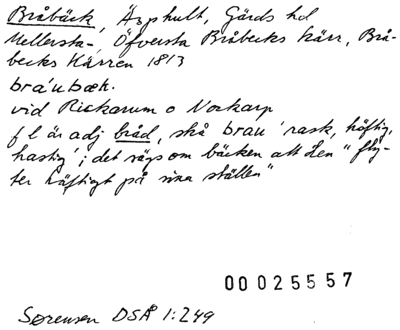 Bråbäck, Äsphult, Gärds hd
Mellersta-, Öfversta Bråbecks kärr, Brå-
becks Kärren 1813
bra'ubæk.
vid Rickarum o Norkarp
f l är adj bråd, skå brau 'rask, häftig,
hastig'; det sägs om bäcken att den "fly-
ter häftigt på sina ställen"
00025557
Sørensen DSÅ 1:249